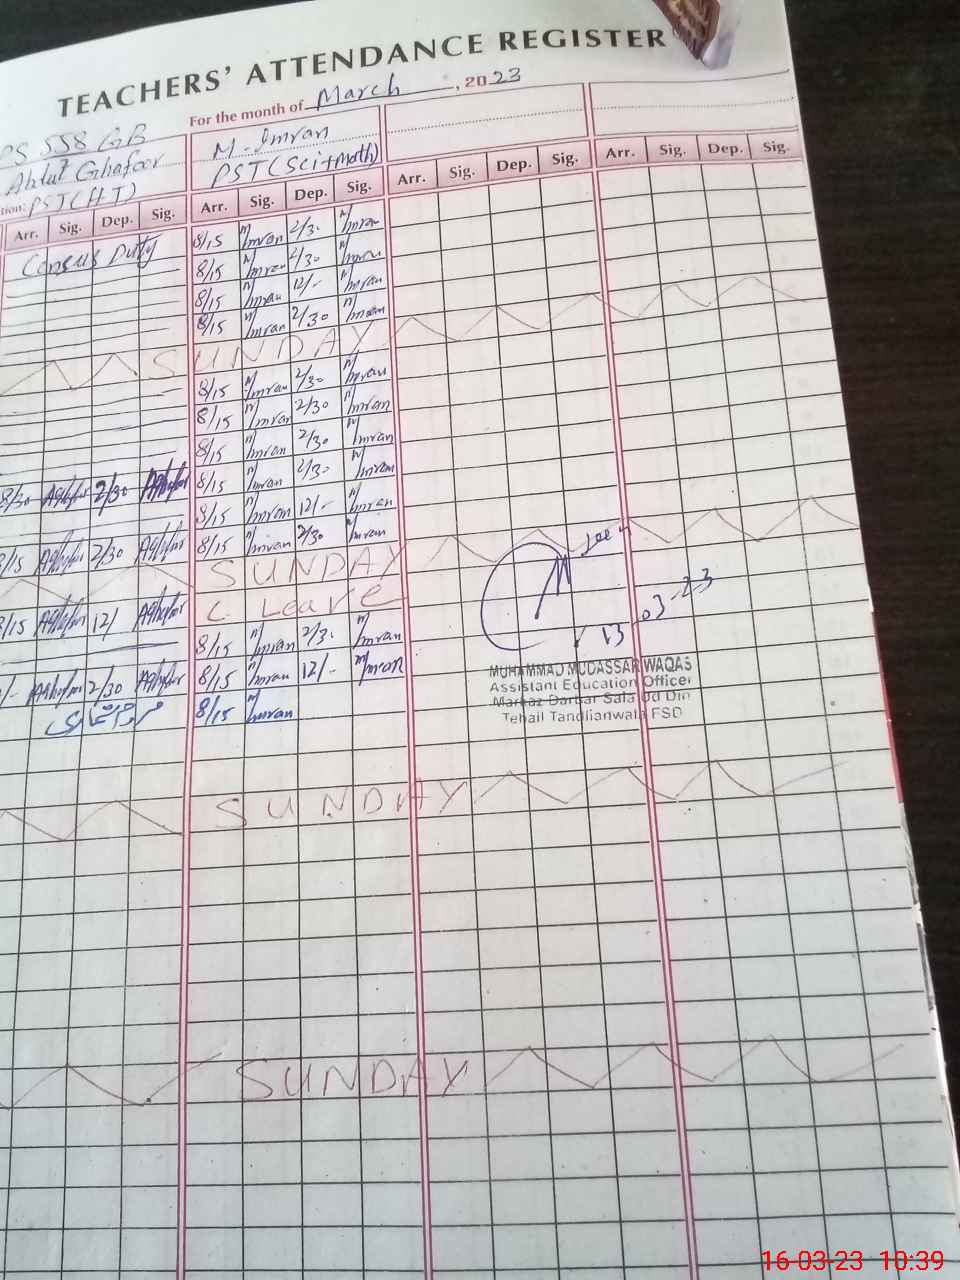 TEACHERS' ATTENDANCE REGISTER
For the month of March, 2023
PS 558 GB
Abdul Ghafoor M. Imran
PST (HT) PST (Sci+Math)
Arr. Sig. Dep. Sig. Arr. Sig. Dep. Sig. Arr. Sig. Dep. Sig. Arr. Sig. Dep. Sig.
Census Duty 8/15 M Imran 2/30 M Imran
8/15 M Imran 2/30 M Imran
8/15 M Imran 12/- M Imran
8/15 M Imran 2/30 M Imran
SUNDAY
8/15 M Imran 2/30 M Imran
8/15 M Imran 2/30 M Imran
8/15 M Imran 2/30 M Imran
8/30 2/30 8/15 M Imran 2/30 M Imran
8/15 M Imran 12/- M Imran
8/15 2/30 8/15 M Imran 2/30 M Imran
SUNDAY
8/15 12/ C. Leave
8/15 M Imran 2/30 M Imran
2/30 8/15 M Imran 12/- M Imran
8/15 M Imran
Seen
13-03-23
MUHAMMAD MUDASSAR WAQAS
Assistant Education Officer
Markaz Darbar Sala Ud Din
Tehsil Tandlianwala FSD
SUNDAY
SUNDAY
16-03-23 10:39